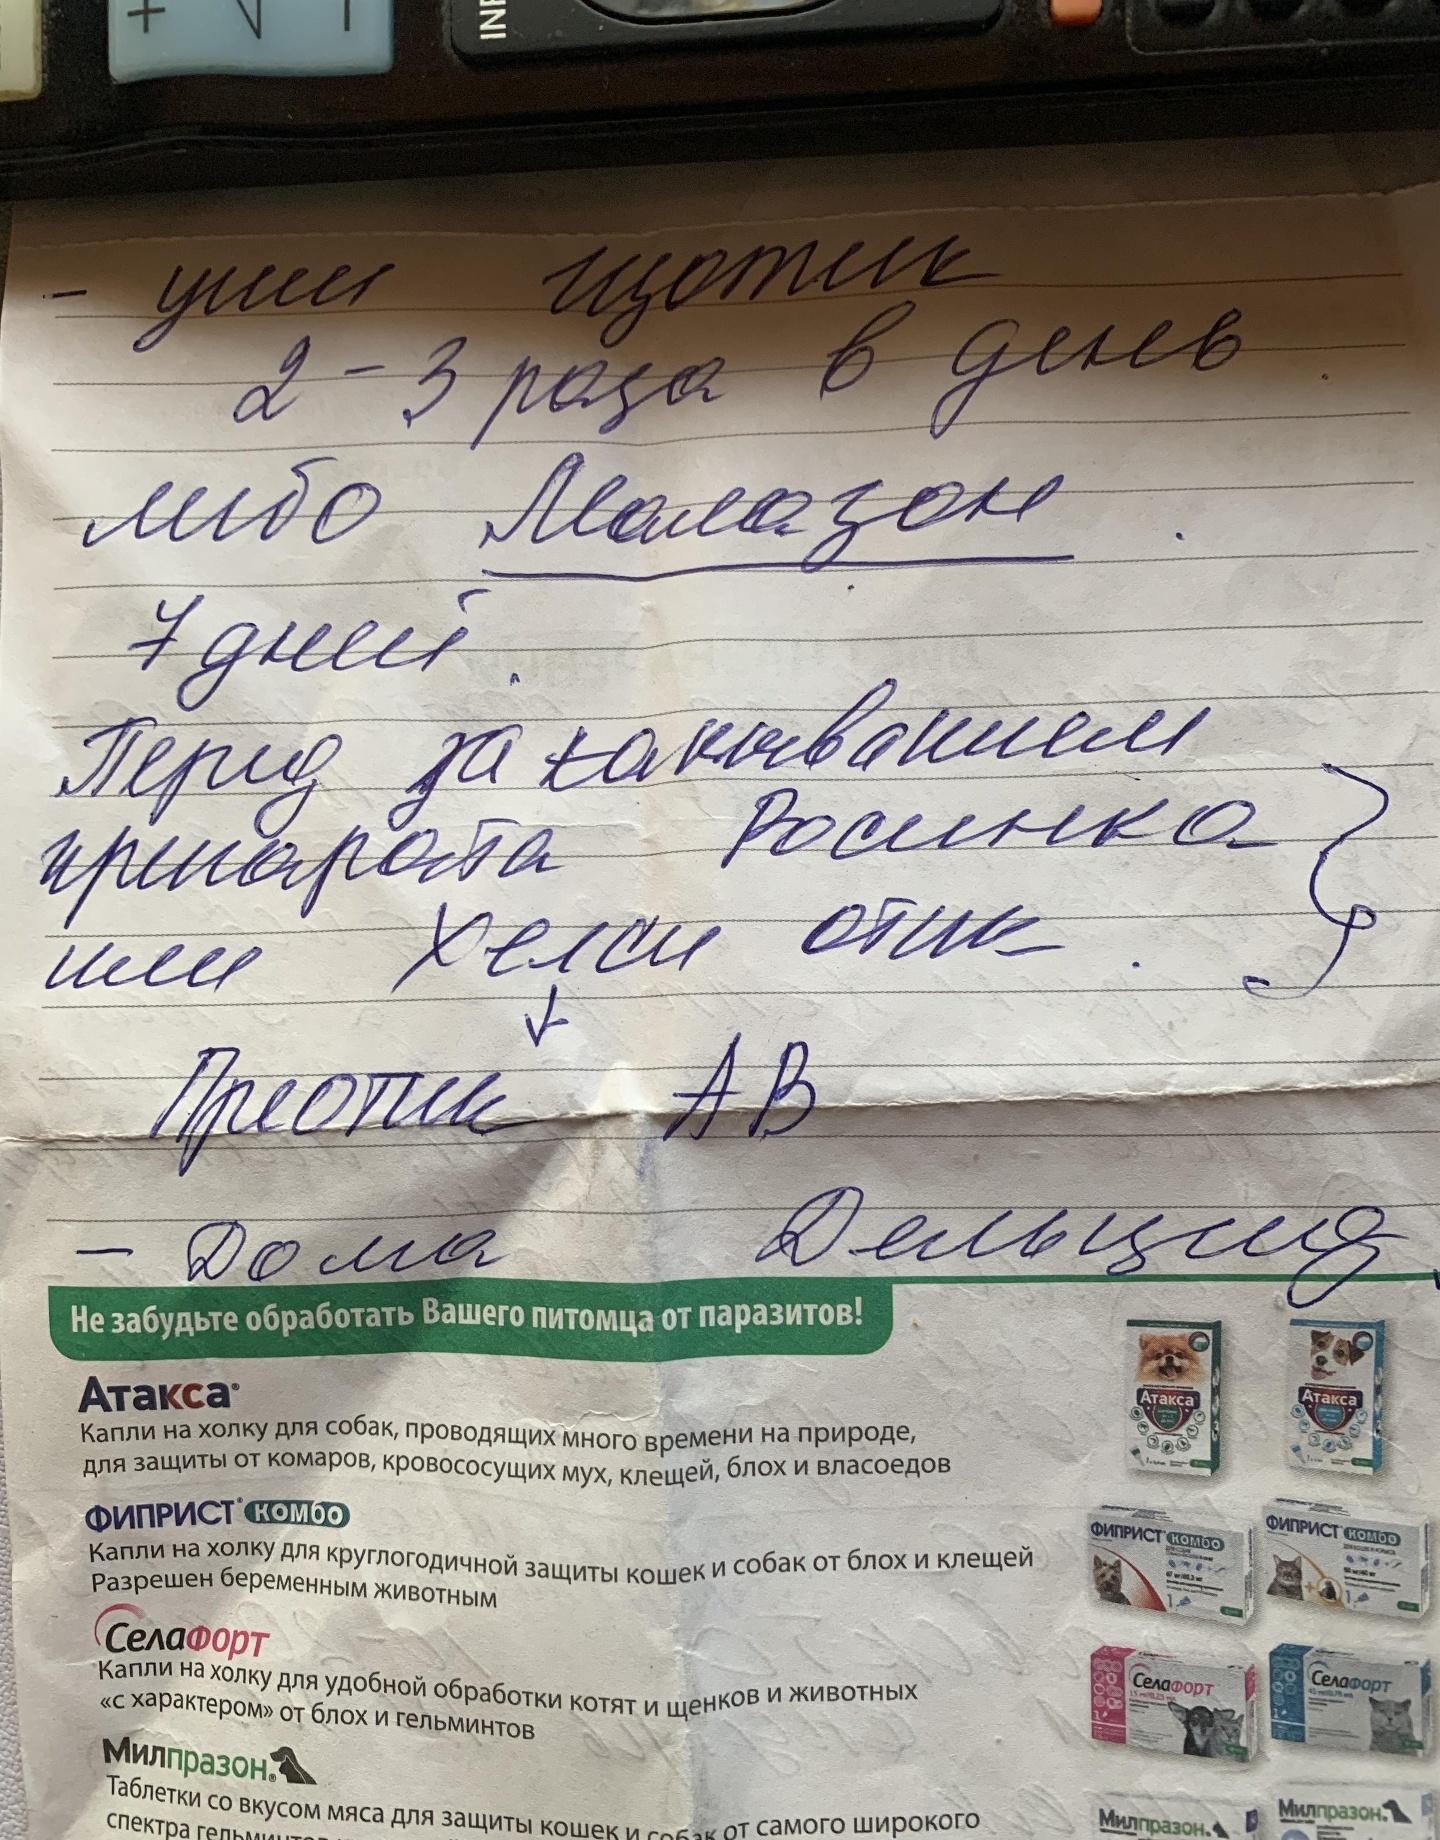 INF
- уши Цотик
2 - 3 раза в день.
либо Мамазон.
7 дней.
Перед закапыванием
препарата Росинка
или Хелси отик.
Преотик АВ
- Дома Дельцид,
Не забудьте обработать Вашего питомца от паразитов!
Атакса®
Капли на холку для собак, проводящих много времени на природе,
для защиты от комаров, кровососущих мух, клещей, блох и власоедов
ФИПРИСТ® КОМБО
Капли на холку для круглогодичной защиты кошек и собак от блох и клещей
Разрешен беременным животным
Селафорт
Капли на холку для удобной обработки котят и щенков и животных
«с характером» от блох и гельминтов
Милпразон®
Таблетки со вкусом мяса для защиты кошек и собак от самого широкого
спектра
Атакса
Атакса
ФИПРИСТ КОМБО
ФИПРИСТ КОМБО
Селафорт
Селафорт
Милпразон
Милпразон